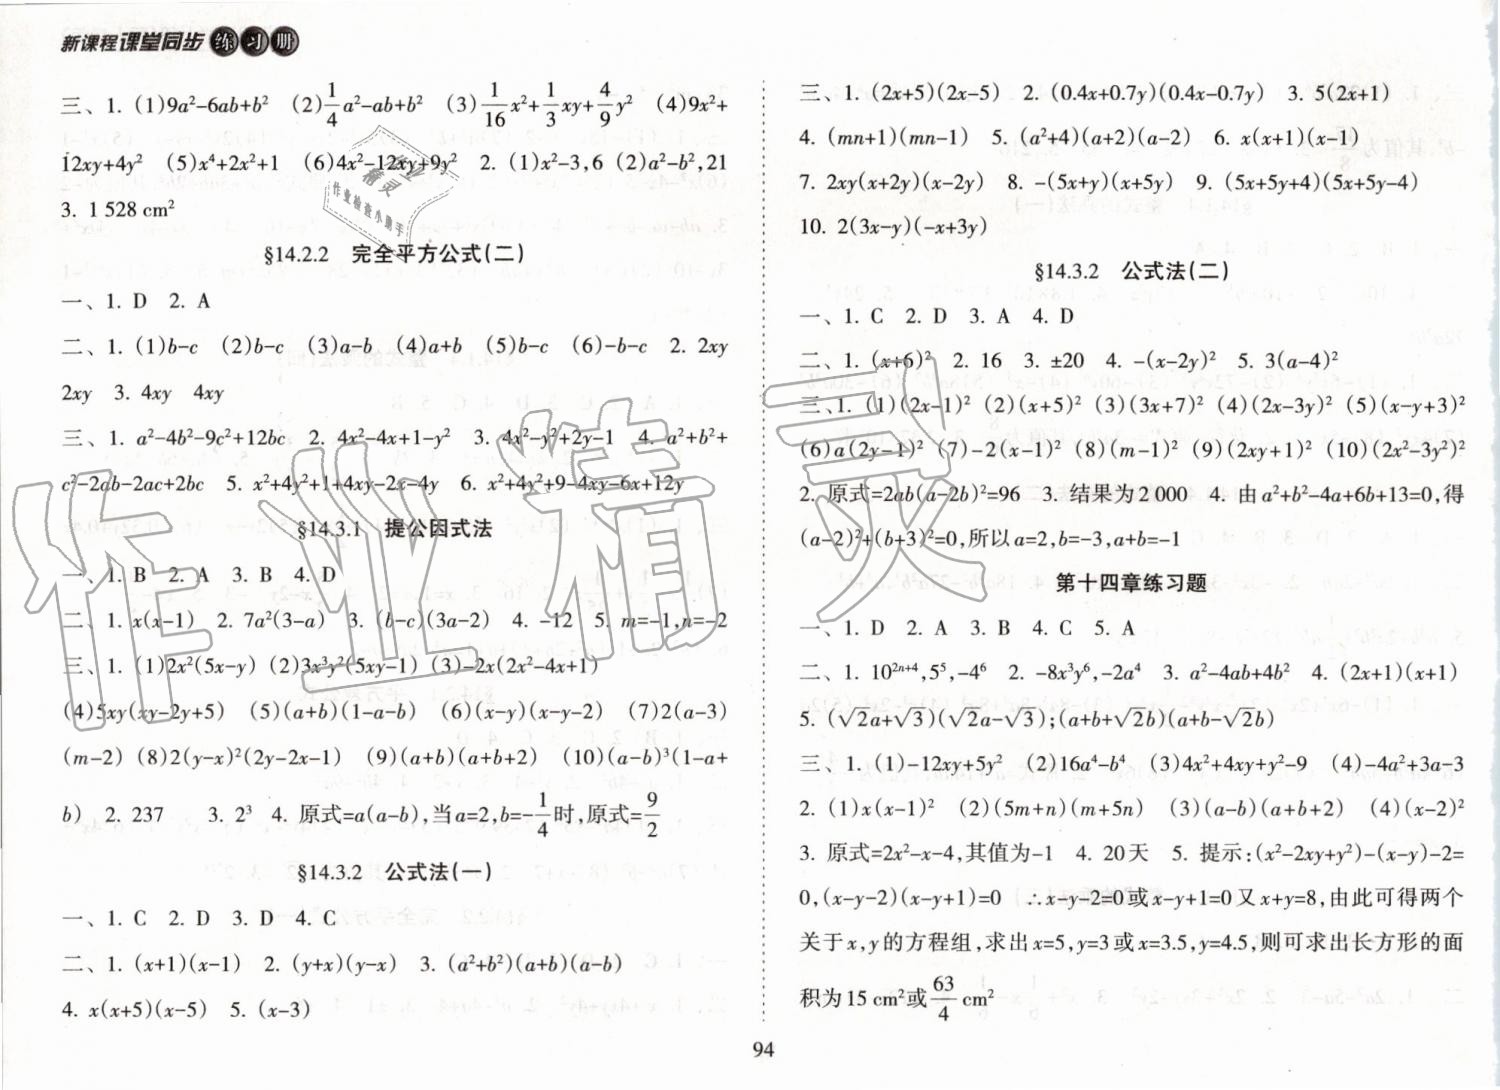 新课程课堂同步练习册
三、1. (1)9a²-6ab+b² (2)1/4a²-ab+b² (3)1/16x²+1/3xy+4/9y² (4)9x²+
12xy+4y² (5)x⁴+2x²+1 (6)4x²-12xy+9y² 2. (1)x²-3,6 (2)a²-b²,21
3. 1 528 cm²
§14.2.2 完全平方公式(二)
一、1. D 2. A
二、1. (1)b-c (2)b-c (3)a-b (4)a+b (5)b-c (6)-b-c 2. 2xy
2xy 3. 4xy 4xy
三、1. a²-4b²-9c²+12bc 2. 4x²-4x+1-y² 3. 4x²-y²+2y-1 4. a²+b²+
c²-2ab-2ac+2bc 5. x²+4y²+1+4xy-2x-4y 6. x²+4y²+9-4xy-6x+12y
§14.3.1 提公因式法
一、1. B 2. A 3. B 4. D
二、1. x(x-1) 2. 7a²(3-a) 3. (b-c)(3a-2) 4. -12 5. m=-1,n=-2
三、1. (1)2x²(5x-y) (2)3x³y²(5xy-1) (3)-2x(2x²-4x+1)
(4)5xy(xy-2y+5) (5)(a+b)(1-a-b) (6)(x-y)(x-y-2) (7)2(a-3)
(m-2) (8)2(y-x)²(2y-2x-1) (9)(a+b)(a+b+2) (10)(a-b)³(1-a+
b) 2. 237 3. 2³ 4. 原式=a(a-b),当a=2,b=-1/4时,原式=9/2
§14.3.2 公式法(一)
一、1. C 2. D 3. D 4. C
二、1. (x+1)(x-1) 2. (y+x)(y-x) 3. (a²+b²)(a+b)(a-b)
4. x(x+5)(x-5) 5. (x-3)
三、1. (2x+5)(2x-5) 2. (0.4x+0.7y)(0.4x-0.7y) 3. 5(2x+1)
4. (mn+1)(mn-1) 5. (a²+4)(a+2)(a-2) 6. x(x+1)(x-1)
7. 2xy(x+2y)(x-2y) 8. -(5x+y)(x+5y) 9. (5x+5y+4)(5x+5y-4)
10. 2(3x-y)(-x+3y)
§14.3.2 公式法(二)
一、1. C 2. D 3. A 4. D
二、1. (x+6)² 2. 16 3. ±20 4. -(x-2y)² 5. 3(a-4)²
三、1. (1)(2x-1)² (2)(x+5)² (3)(3x+7)² (4)(2x-3y)² (5)(x-y+3)²
(6)a(2y-1)² (7)-2(x-1)² (8)(m-1)² (9)(2xy+1)² (10)(2x²-3y²)²
2. 原式=2ab(a-2b)²=96 3. 结果为2 000 4. 由a²+b²-4a+6b+13=0,得
(a-2)²+(b+3)²=0,所以a=2,b=-3,a+b=-1
第十四章练习题
一、1. D 2. A 3. B 4. C 5. A
二、1. 10²ⁿ⁺⁴,5⁵,-4⁶ 2. -8x³y⁶,-2a⁴ 3. a²-4ab+4b² 4. (2x+1)(x+1)
5. (√2a+√3)(√2a-√3);(a+b+√2b)(a+b-√2b)
三、1. (1)-12xy+5y² (2)16a⁴-b⁴ (3)4x²+4xy+y²-9 (4)-4a²+3a-3
2. (1)x(x-1)² (2)(5m+n)(m+5n) (3)(a-b)(a+b+2) (4)(x-2)²
3. 原式=2x²-x-4,其值为-1 4. 20天 5. 提示:(x²-2xy+y²)-(x-y)-2=
0,(x-y-2)(x-y+1)=0 ∴x-y-2=0或x-y+1=0又x+y=8,由此可得两个
关于x,y的方程组,求出x=5,y=3或x=3.5,y=4.5,则可求出长方形的面
积为15 cm²或63/4 cm²
94
作业精灵
精灵
作业检查小助手